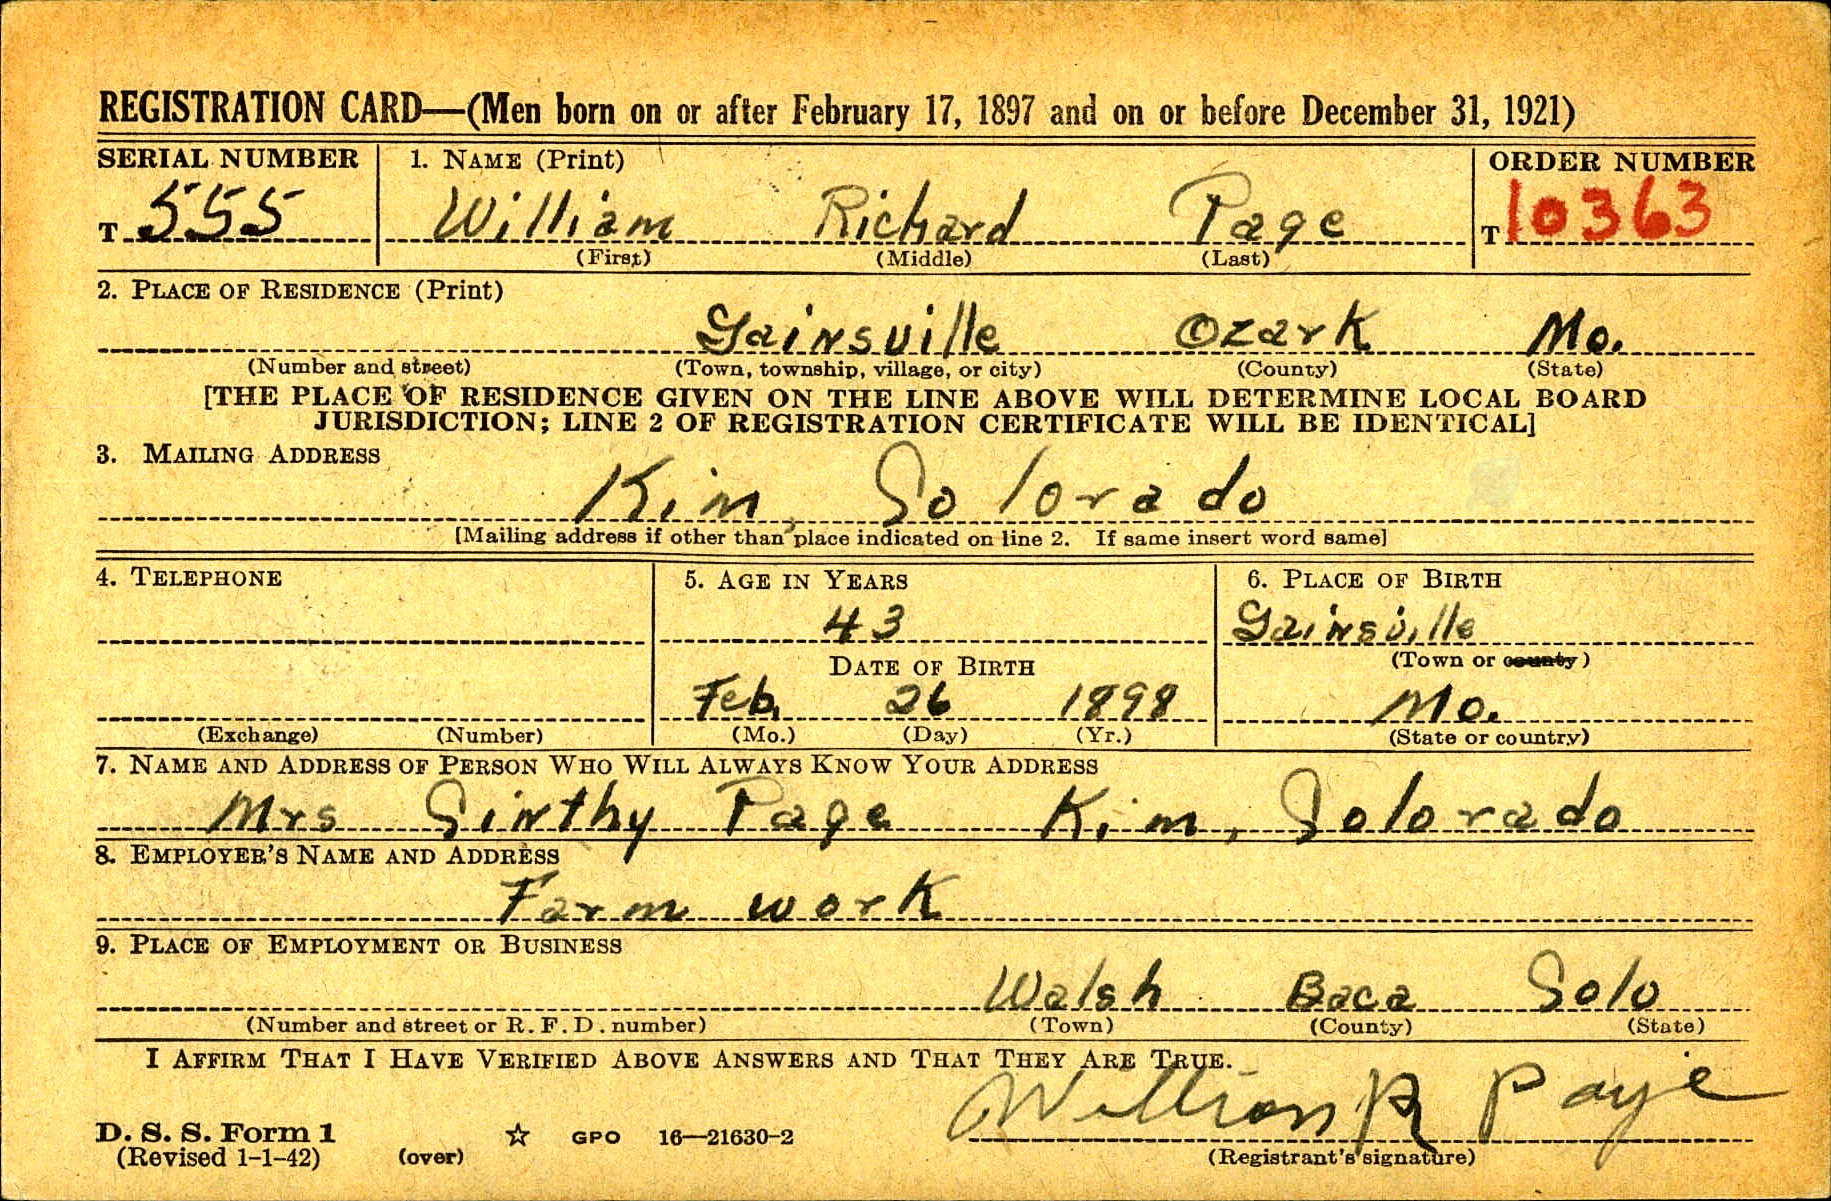 REGISTRATION CARD—(Men born on or after February 17, 1897 and on or before December 31, 1921)
SERIAL NUMBER 1. NAME (Print) ORDER NUMBER
T 555 William Richard Page T 10363
(First) (Middle) (Last)
2. PLACE OF RESIDENCE (Print)
Gainsville Ozark Mo.
(Number and street) (Town, township, village, or city) (County) (State)
[THE PLACE OF RESIDENCE GIVEN ON THE LINE ABOVE WILL DETERMINE LOCAL BOARD
JURISDICTION; LINE 2 OF REGISTRATION CERTIFICATE WILL BE IDENTICAL]
3. MAILING ADDRESS
Kim, Colorado
[Mailing address if other than place indicated on line 2. If same insert word same]
4. TELEPHONE 5. AGE IN YEARS 6. PLACE OF BIRTH
43 Gainsville
DATE OF BIRTH (Town or county)
Feb. 26 1898 Mo.
(Exchange) (Number) (Mo.) (Day) (Yr.) (State or country)
7. NAME AND ADDRESS OF PERSON WHO WILL ALWAYS KNOW YOUR ADDRESS
Mrs Cinthy Page Kim, Colorado
8. EMPLOYER'S NAME AND ADDRESS
Farm work
9. PLACE OF EMPLOYMENT OR BUSINESS
Walsh Baca Colo
(Number and street or R. F. D. number) (Town) (County) (State)
I AFFIRM THAT I HAVE VERIFIED ABOVE ANSWERS AND THAT THEY ARE TRUE.
William R Page
D. S. S. Form 1
(Revised 1-1-42) (over) ☆ GPO 16—21630-2 (Registrant's signature)